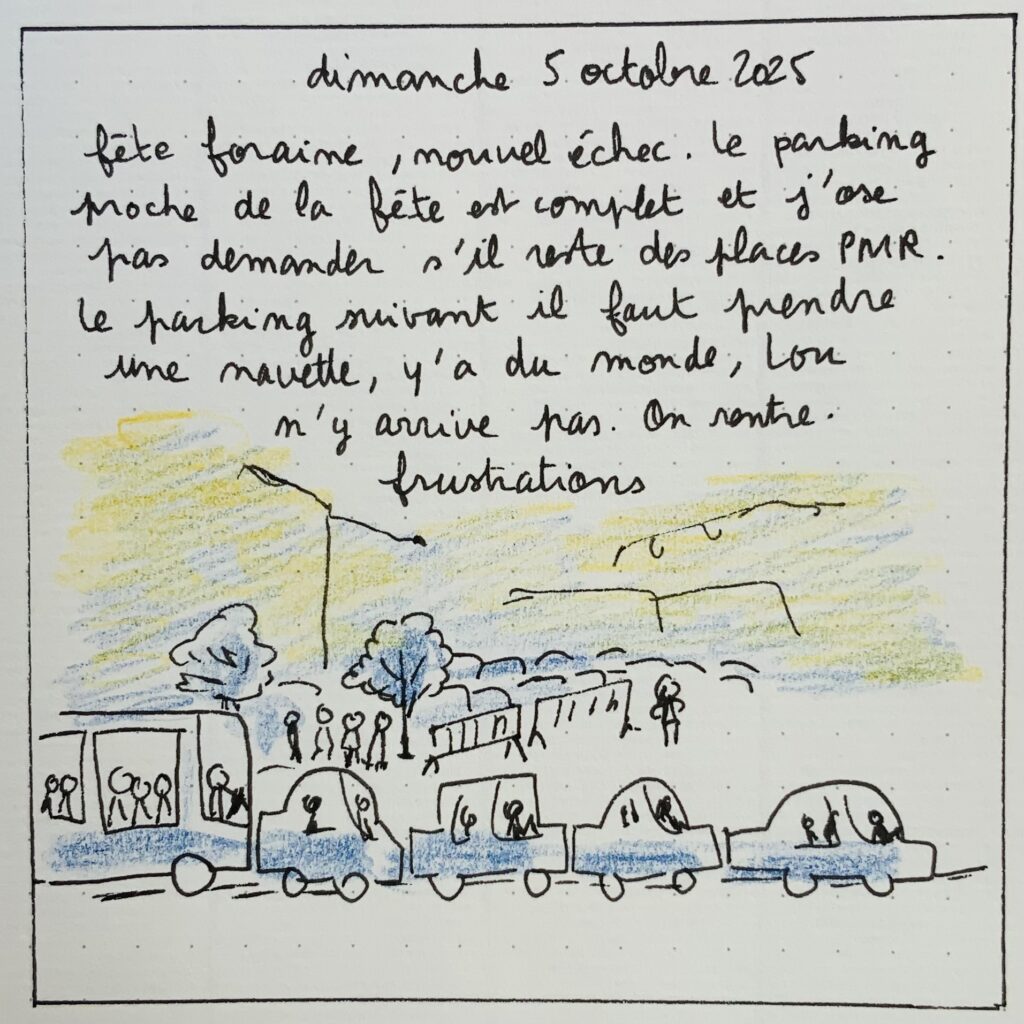 dimanche 5 octobre 2025
fête foraine, nouvel échec. le parking
proche de la fête est complet et j'ose
pas demander s'il reste des places PMR.
Le parking suivant il faut prendre
une navette, y'a du monde, Lou
n'y arrive pas. On rentre.
frustrations